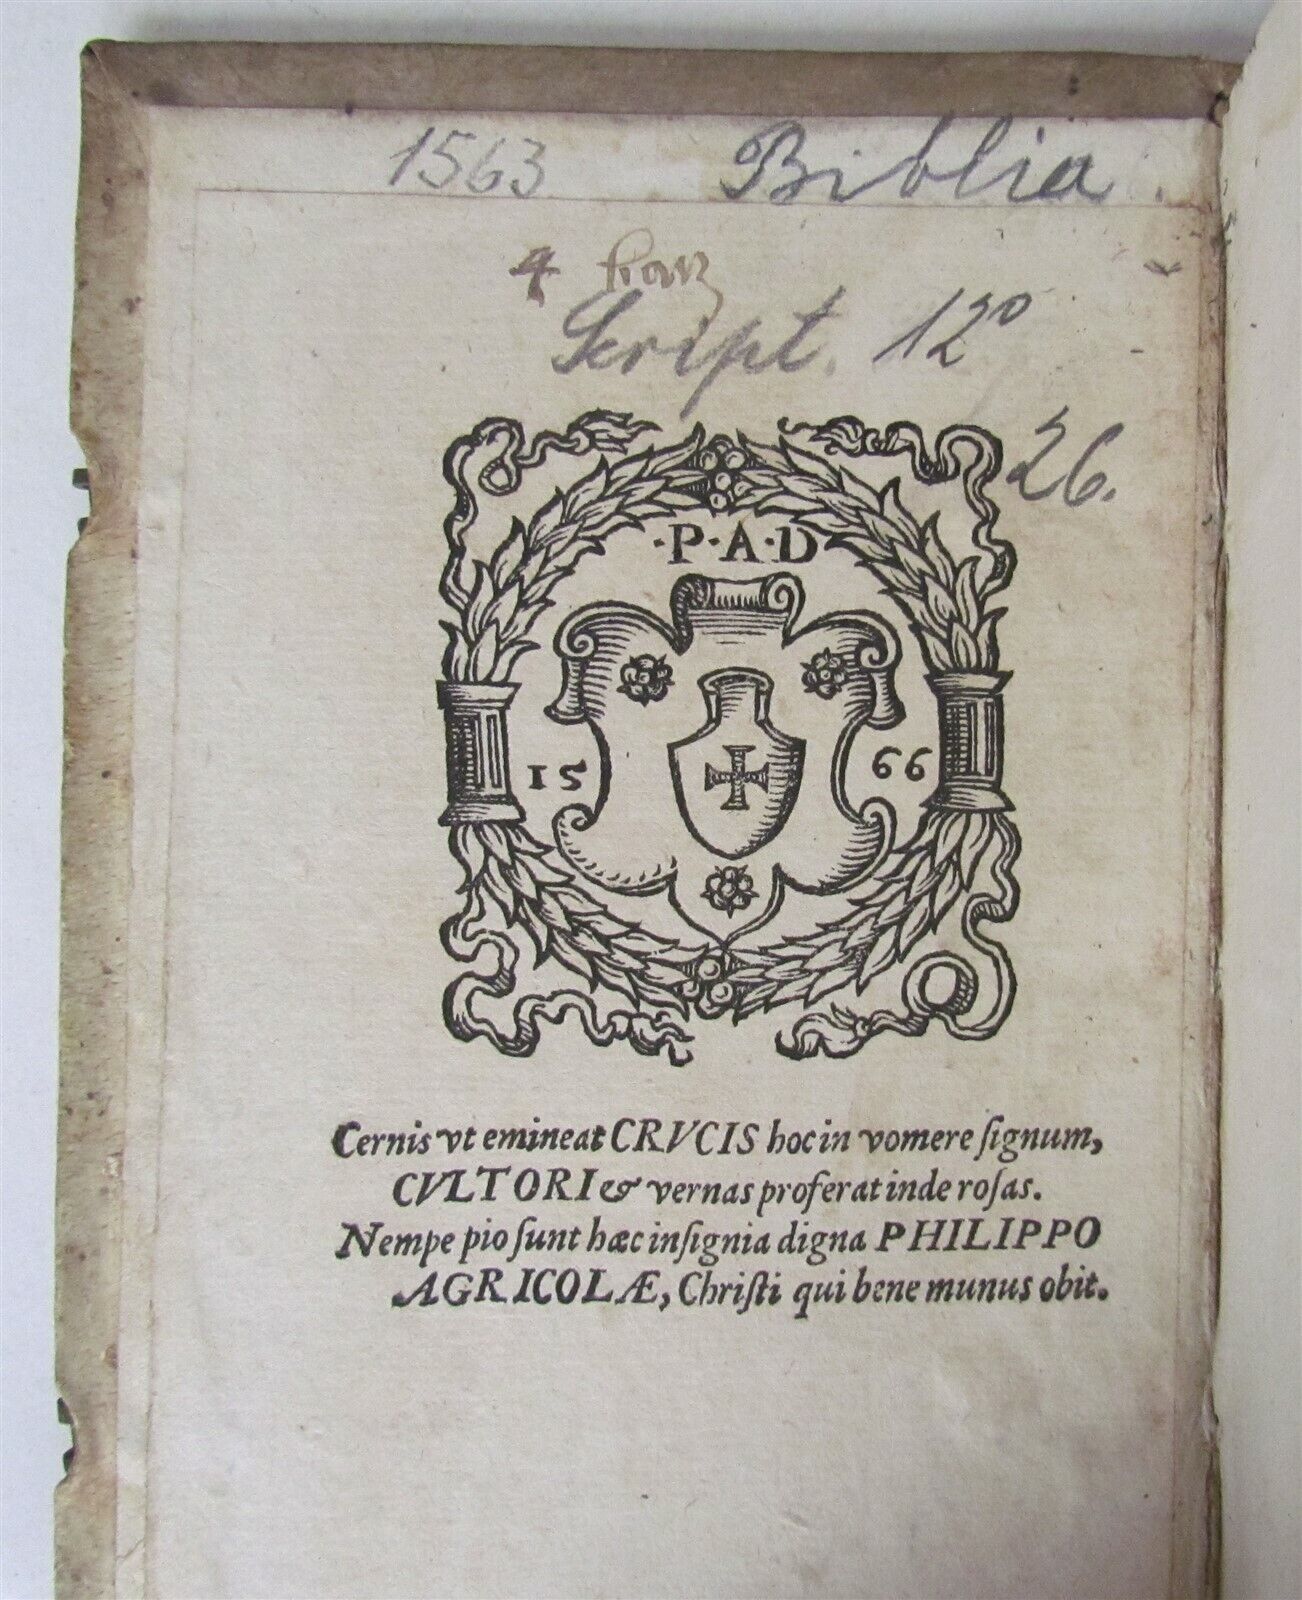 1563 Biblia.
4
Script. 12°
26.
·P·A·D
15 66
Cernis vt emineat CRVCIS hoc in vomere ſignum,
CVLTORI & vernas proferat inde roſas.
Nempe pio ſunt hæc inſignia digna PHILIPPO
AGRICOLÆ, Chriſti qui bene munus obit.